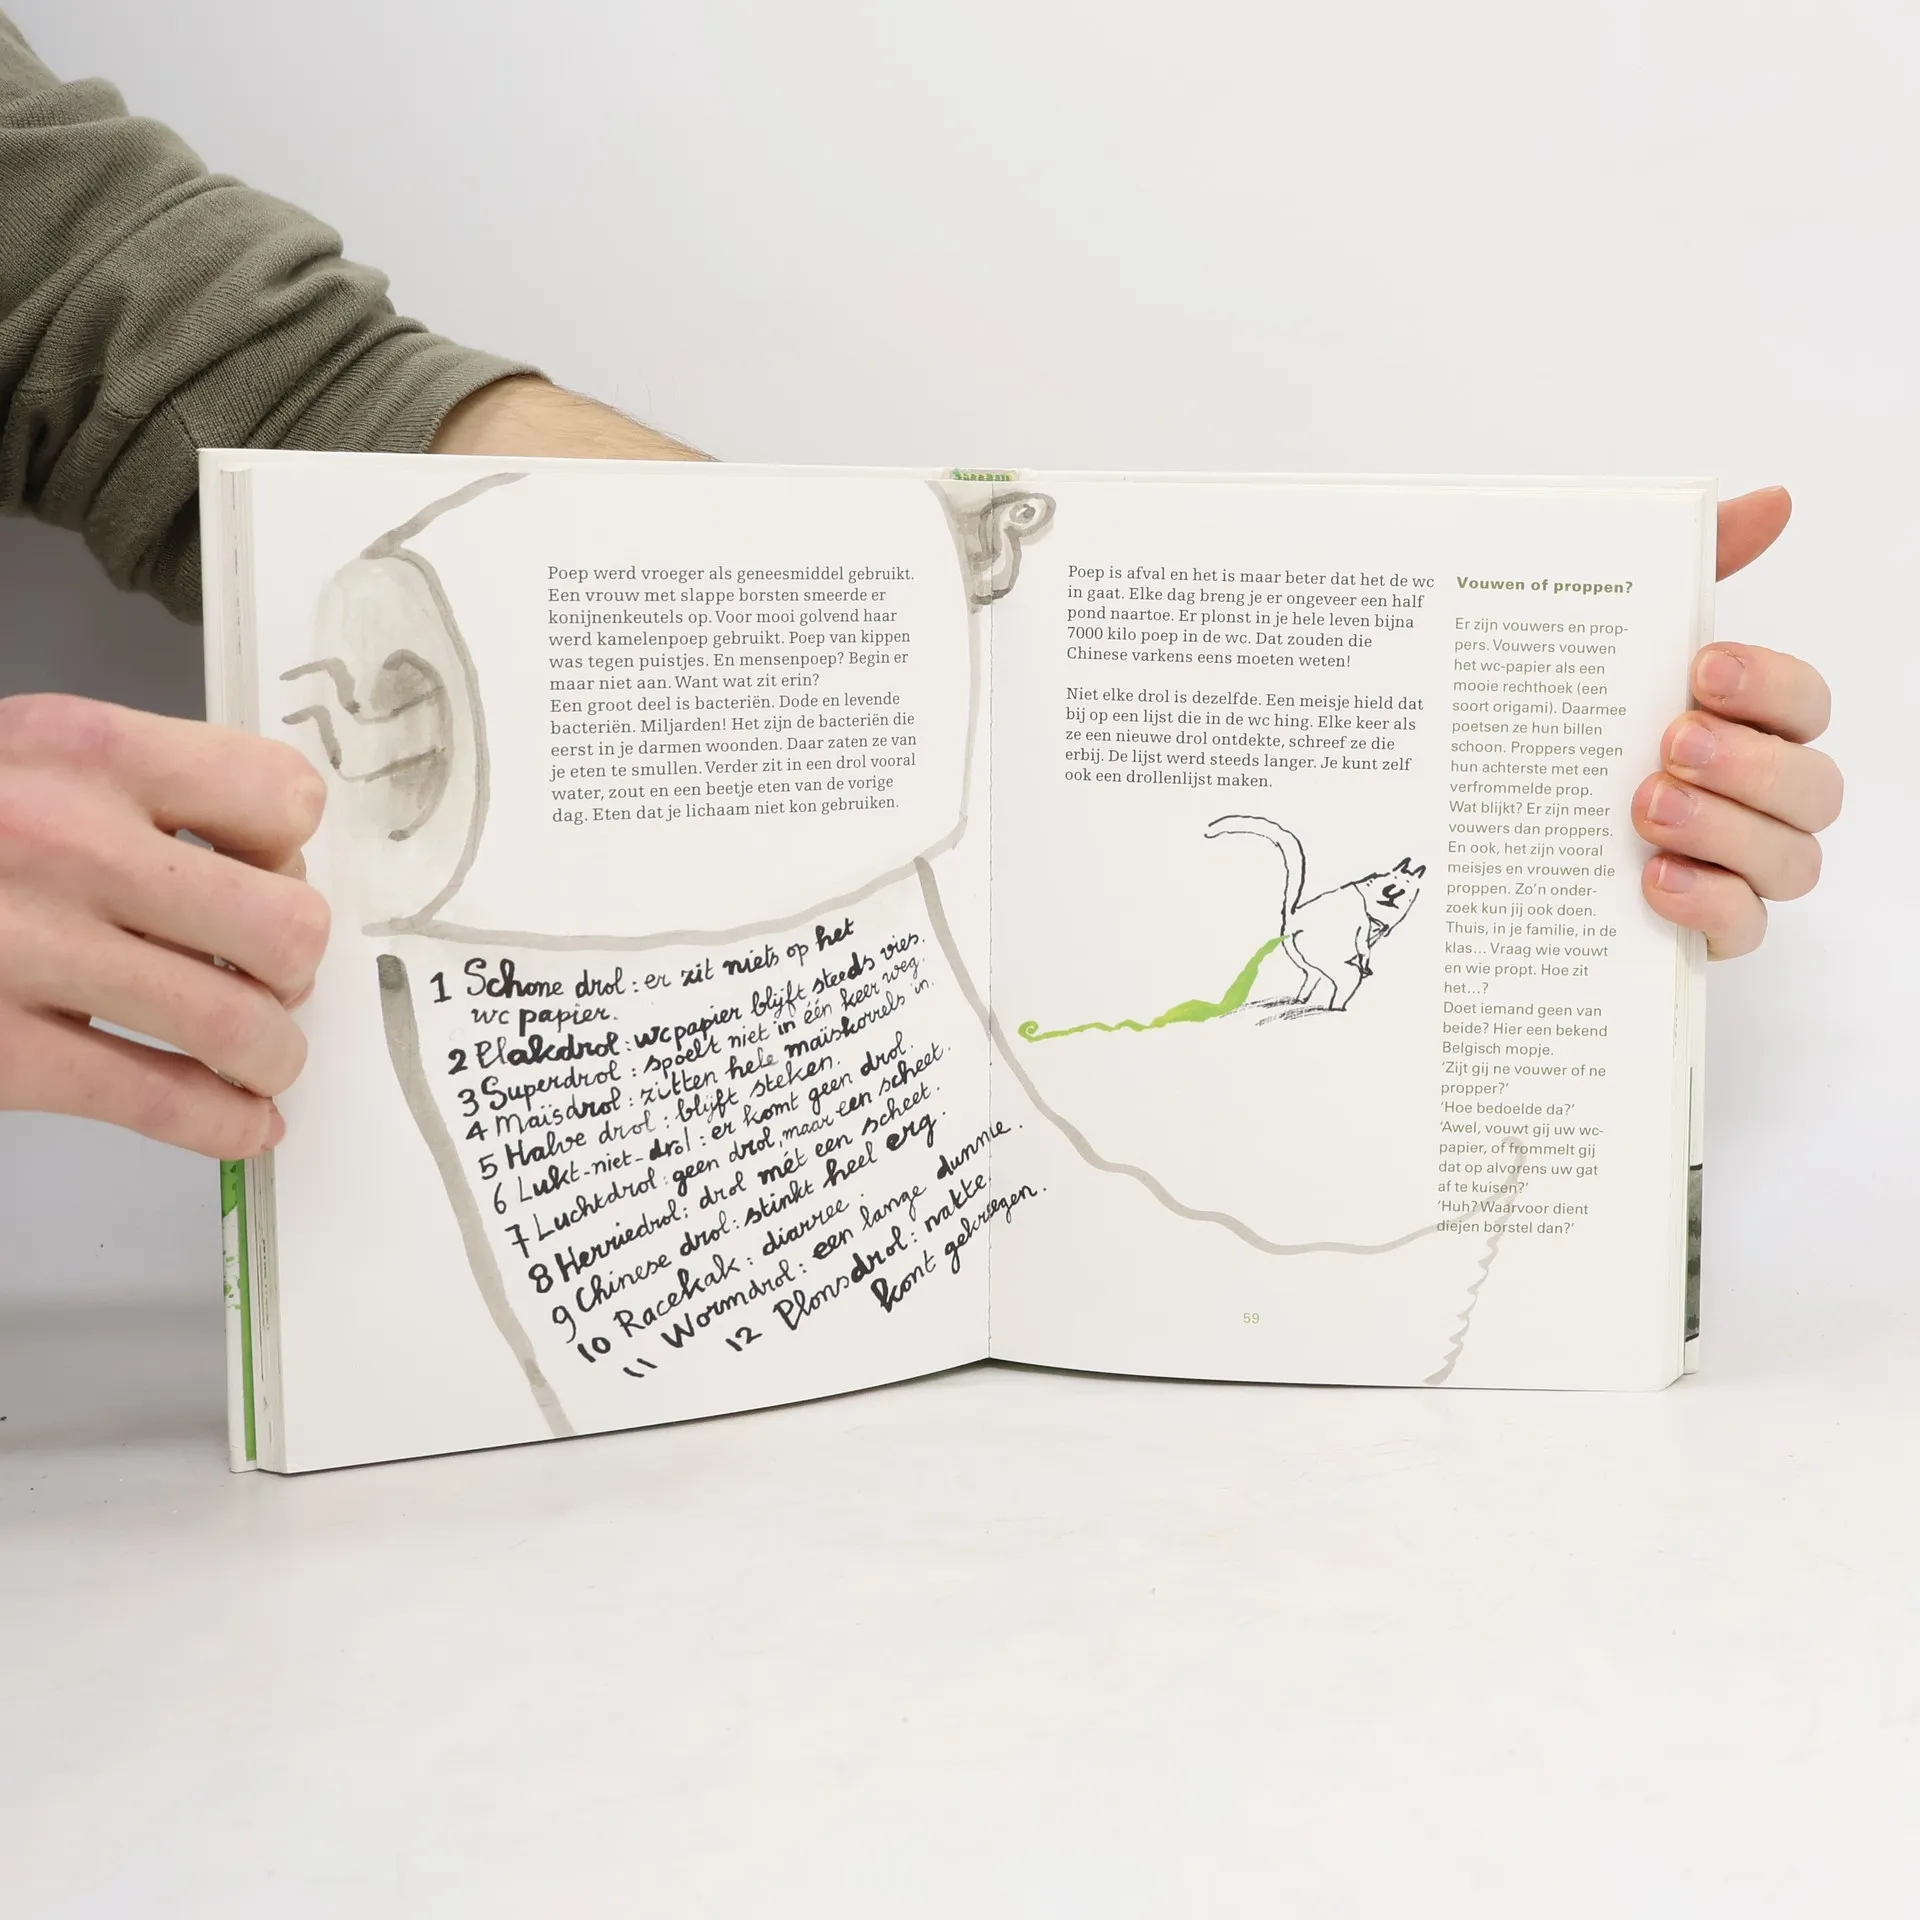 Poep werd vroeger als geneesmiddel gebruikt.
Een vrouw met slappe borsten smeerde er
konijnenkeutels op. Voor mooi golvend haar
werd kamelenpoep gebruikt. Poep van kippen
was tegen puistjes. En mensenpoep? Begin er
maar niet aan. Want wat zit erin?
Een groot deel is bacteriën. Dode en levende
bacteriën. Miljarden! Het zijn de bacteriën die
eerst in je darmen woonden. Daar zaten ze van
je eten te smullen. Verder zit in een drol vooral
water, zout en een beetje eten van de vorige
dag. Eten dat je lichaam niet kon gebruiken.
1 Schone drol: er zit niets op het
wc papier.
2 Plakdrol: wc papier blijft steeds vies.
3 Superdrol: spoelt niet in één keer weg.
4 Maïsdrol: zitten hele maïskorrels in.
5 Halve drol: blijft steken.
6 Lukt-niet-drol: er komt geen drol.
7 Luchtdrol: geen drol, maar een scheet.
8 Herriedrol: drol mét een scheet.
9 Chinese drol: stinkt heel erg.
10 Racekak: diarree.
11 Wormdrol: een lange dunnie.
12 Plonsdrol: natte
kont gekregen.
Poep is afval en het is maar beter dat het de wc
in gaat. Elke dag breng je er ongeveer een half
pond naartoe. Er plonst in je hele leven bijna
7000 kilo poep in de wc. Dat zouden die
Chinese varkens eens moeten weten!
Niet elke drol is dezelfde. Een meisje hield dat
bij op een lijst die in de wc hing. Elke keer als
ze een nieuwe drol ontdekte, schreef ze die
erbij. De lijst werd steeds langer. Je kunt zelf
ook een drollenlijst maken.
Vouwen of proppen?
Er zijn vouwers en prop-
pers. Vouwers vouwen
het wc-papier als een
mooie rechthoek (een
soort origami). Daarmee
poetsen ze hun billen
schoon. Proppers vegen
hun achterste met een
verfrommelde prop.
Wat blijkt? Er zijn meer
vouwers dan proppers.
En ook, het zijn vooral
meisjes en vrouwen die
proppen. Zo'n onder-
zoek kun jij ook doen.
Thuis, in je familie, in de
klas... Vraag wie vouwt
en wie propt. Hoe zit
het...?
Doet iemand geen van
beide? Hier een bekend
Belgisch mopje.
'Zijt gij ne vouwer of ne
propper?'
'Hoe bedoelde da?'
'Awel, vouwt gij uw wc-
papier, of frommelt gij
dat op alvorens uw gat
af te kuisen?'
'Huh? Waarvoor dient
diejen borstel dan?'
59